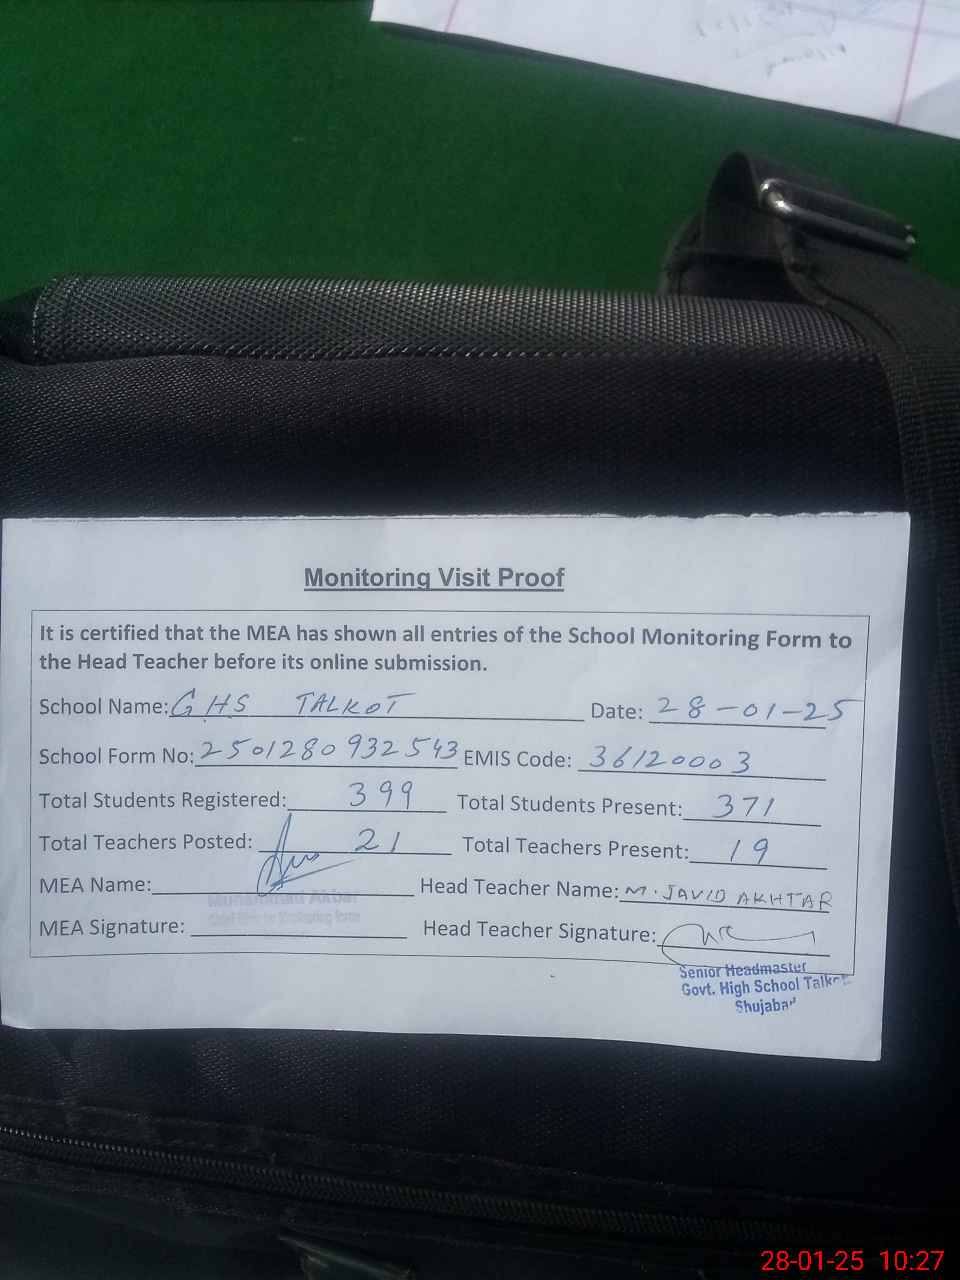 Monitoring Visit Proof
It is certified that the MEA has shown all entries of the School Monitoring Form to
the Head Teacher before its online submission.
School Name: GHS TALKOT Date: 28-01-25
School Form No: 2501280932543 EMIS Code: 36120003
Total Students Registered: 399 Total Students Present: 371
Total Teachers Posted: 21 Total Teachers Present: 19
MEA Name: Head Teacher Name: M. JAVID AKHTAR
Muhammad Akbar
MEA Signature: Head Teacher Signature:
Senior Headmaster
Govt. High School Talkot
Shujabad
28-01-25 10:27